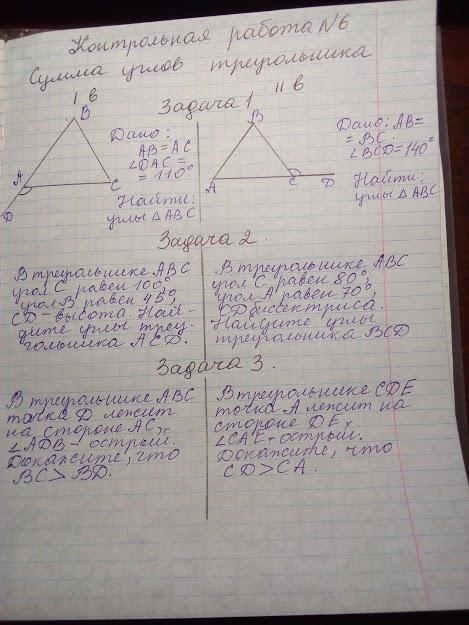 Контрольная работа N6
Сумма углов треугольника
I в
II в
Задача 1
B
A
C
D
Дано:
AB=AC
∠DAC=
=110°
Найти:
углы △ABC
B
A
C
D
Дано: AB=
=BC.
∠BCD=140°
Найти:
углы △ABC
Задача 2.
В треугольнике ABC
угол C равен 100°,
угол B равен 45°,
CD-высота. Най-
дите углы треу-
гольника ACD.
В треугольнике ABC
угол C равен 80°,
угол A равен 70°,
CD биссектриса.
Найдите углы
треугольника BCD
Задача 3.
В треугольнике ABC
точка D лежит
на стороне AC,
∠ADB- острый.
Докажите, что
BC>BD.
В треугольнике CDE
точка A лежит на
стороне DE,
∠CAE-острый.
Докажите, что
CD>CA.